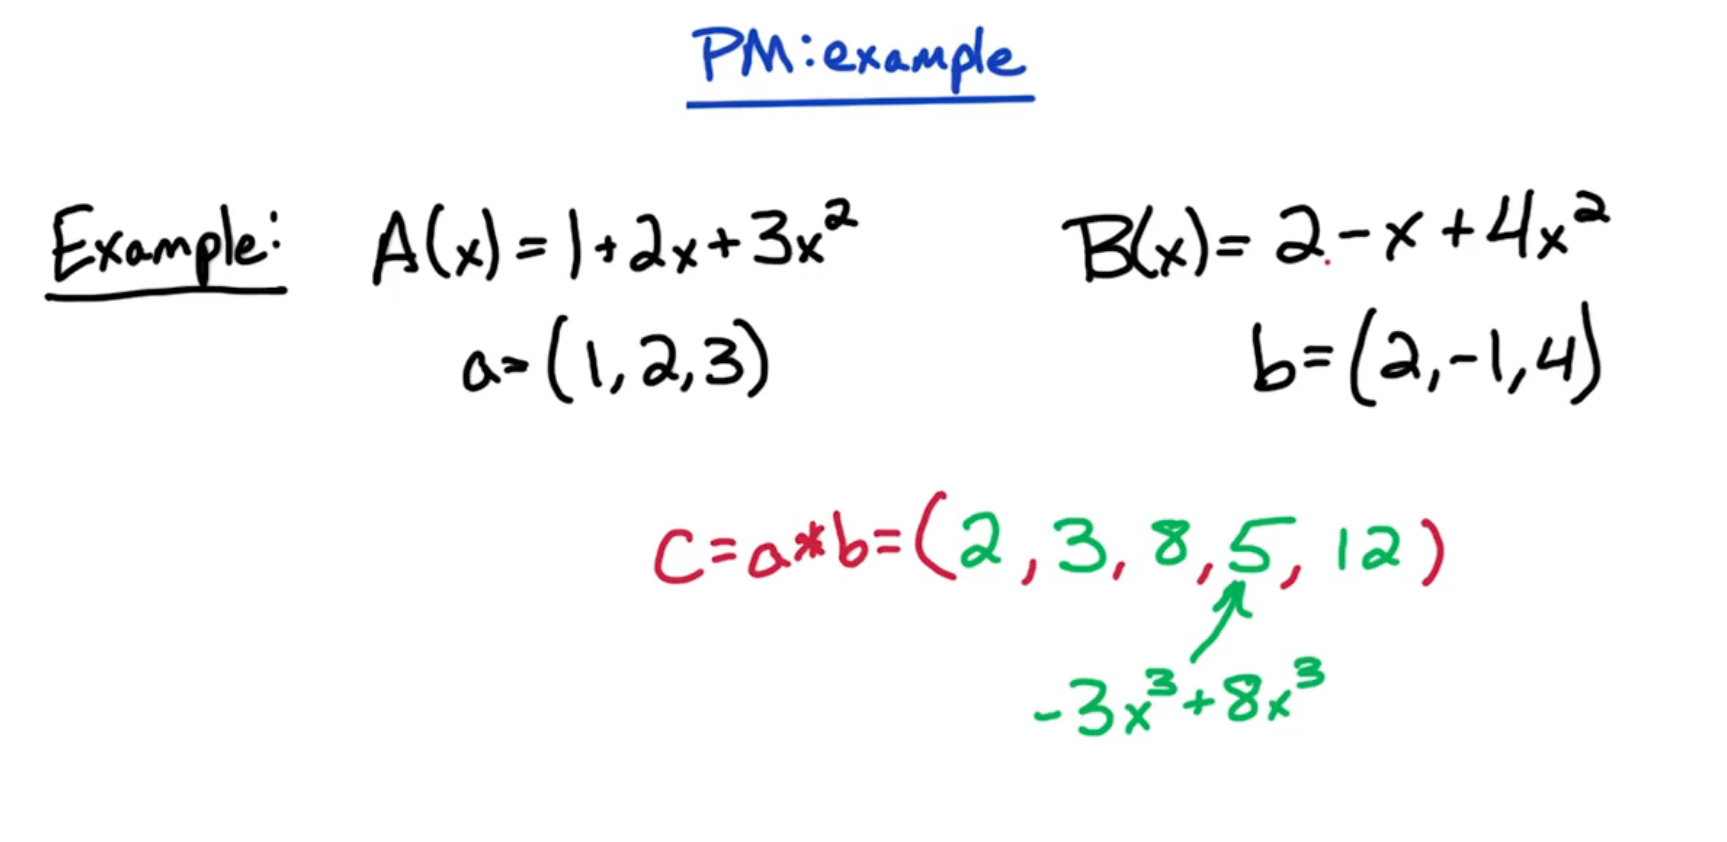 PM: example
Example: A(x) = 1 + 2x + 3x² B(x) = 2 - x + 4x²
a = (1, 2, 3) b = (2, -1, 4)
c = a * b = (2, 3, 8, 5, 12)
-3x³ + 8x³